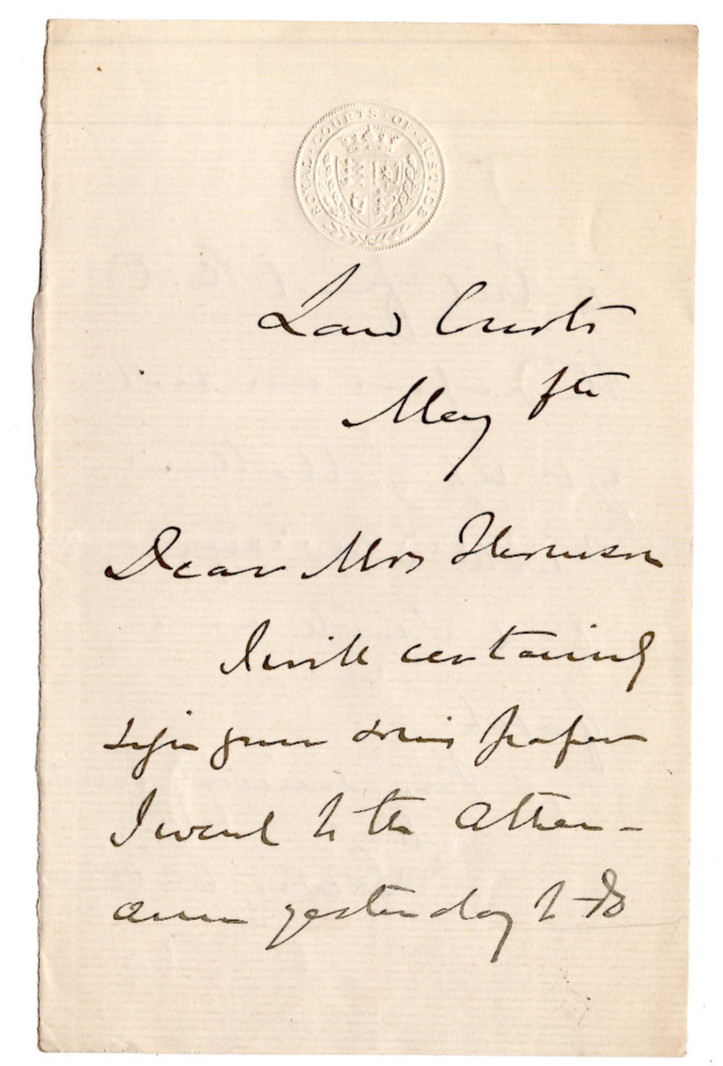 ROYAL · COURTS · OF · JUSTICE
Law Courts
May
Dear Mrs Thomson
I will certainly
sign your sons paper
I went to the Athen-
aeum yesterday to do